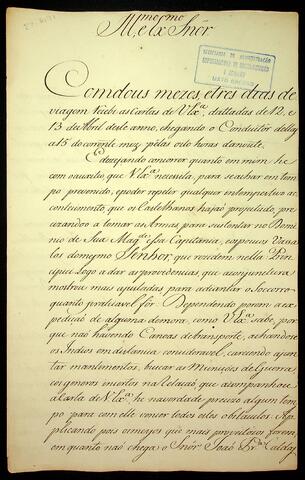 mesmo
Ill e Ex Snōr
Com dous mezes, e tres dias de
viagem recebi as Cartas de V Exª, dattadas de 12, e
13 de Abril deste anno, chegando o Conductor dellas
a 15 do corrente mez pelas oito horas da noute.
Dezejando concorrer quanto em mim he
com o auxilio, que V Exª necessita, para se achar em
tempo prevenido, e poder repelir qualquer intempestivo a
contecimento, que os Castelhanos hajaõ projectado, pre
cizando a tomar as Armas para sustentar no Domi
nio de Sua Magᵉ essa Capitania, e os povos Vassa
los do mesmo Senhor que rezidem nella Prin
cipiei logo a dar as providencias, que a conjunctura
mostrou mais ajustadas para adiantar o Socorro
quanto praticavel for. Dependendo porem a ex
pediçaõ de alguma demora, como V Exª sabe, por
que naõ havendo Canoas de transporte, achandose
os Indios em distancia consideravel, carecendo ajun
tar mantimentos, buscar as Muniçoens de Guerra,
e os generos insertos na Relaçaõ que acompanhou
a Carta de V Exª, he na verdade precizo algum tem
po para com elle vencer todos estes obstaculos. Ap
plicando pois os meyos que mais proveitosos forem,
em quanto naõ chega o Snōr Joaõ Prª Caldas